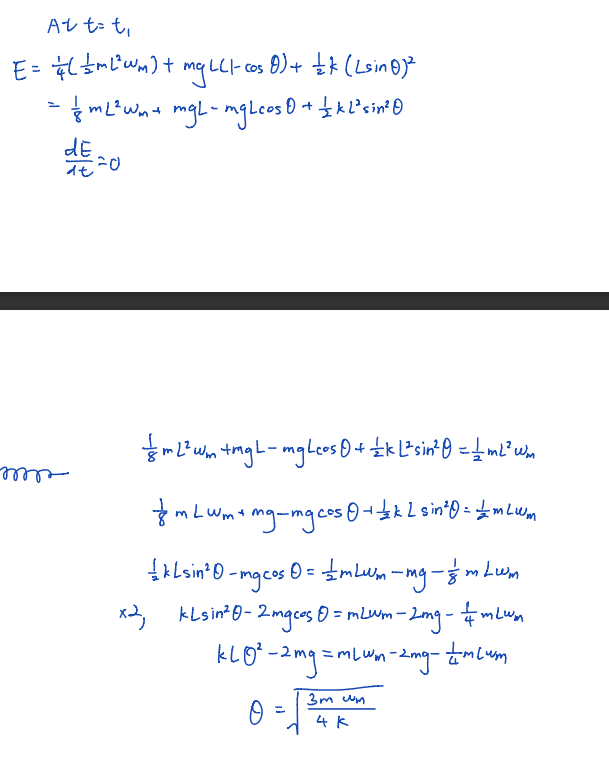 At t = t₁
E = ¼(½mL²ωₘ) + mgL(1-cos θ) + ½k(Lsinθ)²
= ⅛ mL²ωₘ + mgL - mgLcosθ + ½kL²sin²θ
dE/dt = 0
⅛mL²ωₘ + mgL - mgLcosθ + ½kL²sin²θ = ½mL²ωₘ
⅛mLωₘ + mg - mgcosθ + ½kLsin²θ = ½mLωₘ
½kLsin²θ - mgcosθ = ½mLωₘ - mg - ⅛mLωₘ
x2, kLsin²θ - 2mgcosθ = mLωₘ - 2mg - ¼mLωₘ
kLθ² - 2mg = mLωₘ - 2mg - ¼mLωₘ
θ = √(3mωₘ/4k)